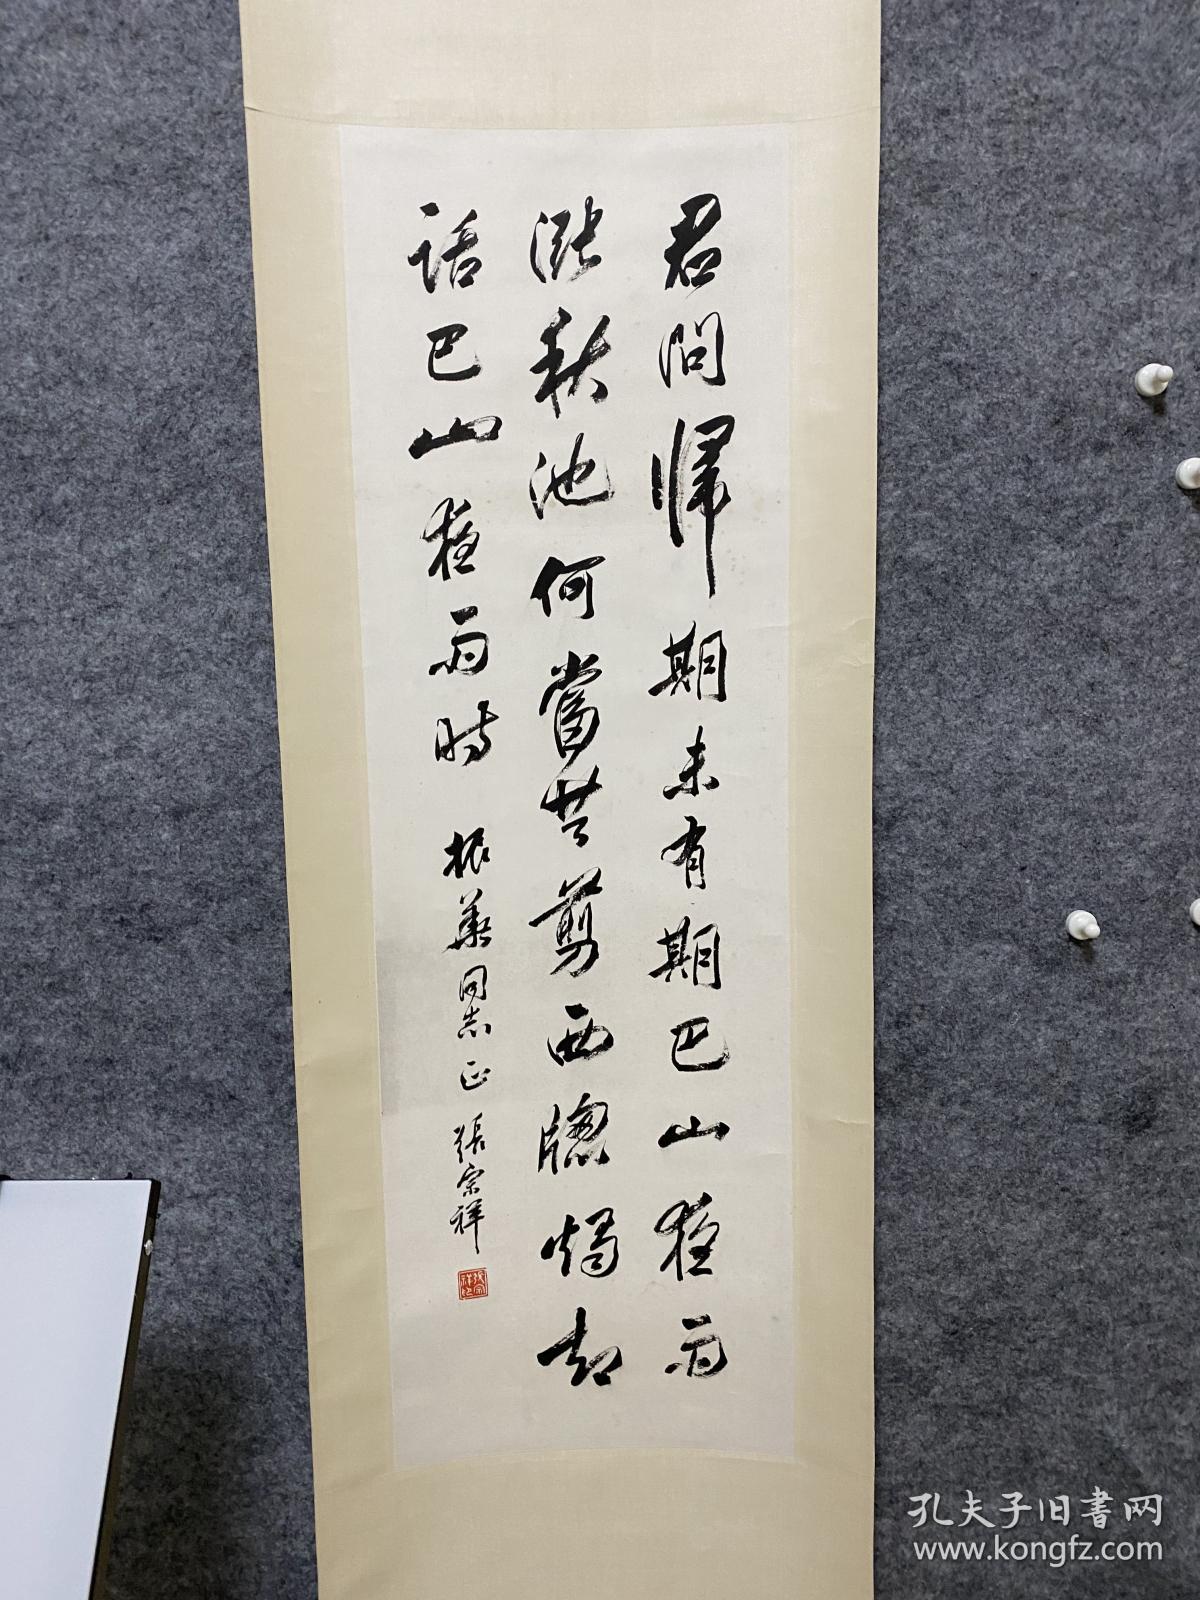 君問歸期未有期巴山夜雨
漲秋池何當共剪西窗燭却
話巴山夜雨時
振華同志正 張宗祥
孔夫子旧书网
www.kongfz.com